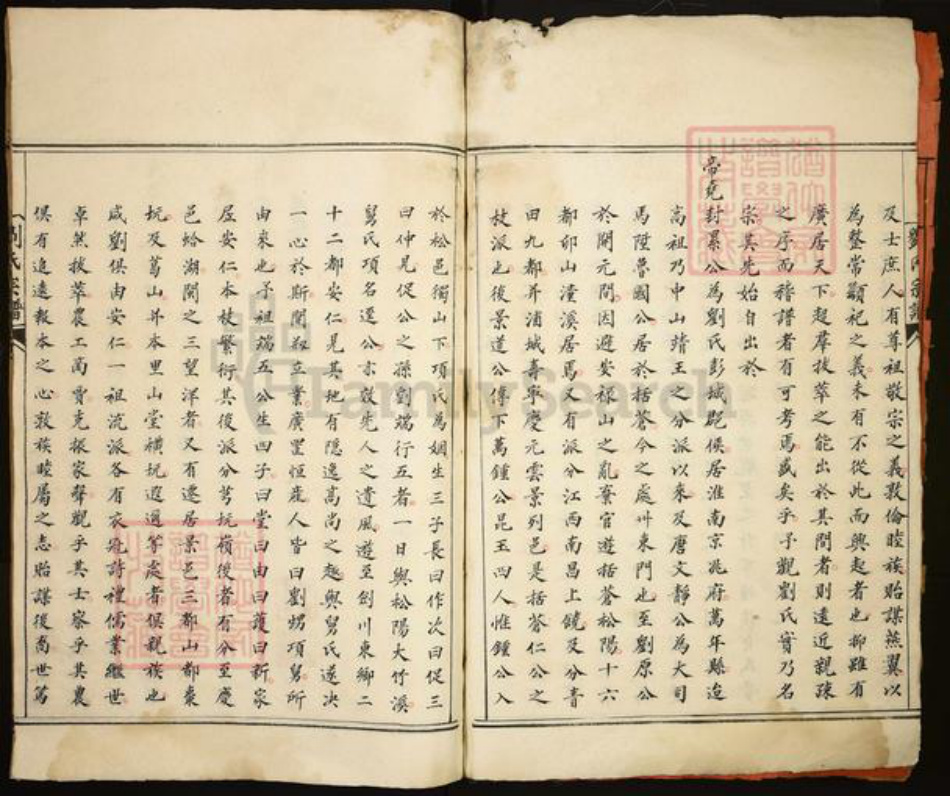 及士庶人有尊祖敬宗之義敦倫睦族貽謀燕翼以
為蒸常顓祀之義未有不從此而興起者也抑雖有
廣居天下超羣拔萃之能出於其間者則遠近親疎
之序而稽譜者有可考焉盛矣乎予觀劉氏實乃名
宗其先始自出於
帝堯封累公為劉氏彭城郡侯居淮南京兆府萬年縣迨
高祖乃中山靖王之分派以來及唐文靜公為大司
馬陞魯國公居於括蒼今之處州東門也至劉原公
於開元間因避安祿山之亂棄官遊括蒼松陽十六
都卯山潼溪居焉又有派分江西南昌上饒及分青
田九都并浦城壽寧慶元雲景列邑是括蒼仁公之
枝派也後景道公傳下萬鍾公昆玉四人惟鍾公入
於松邑獨山下項氏為姻生三子長曰作次曰促三
曰仲見促公之孫劉端行五者一日與松陽大竹溪
舅氏項名選公亦敦先人之遺風遊至劍川東鄉二
十二都安仁見其地有隱逸高尚之趣與舅氏遂決
一心於斯開剏立業廣置恒產人皆曰劉甥項舅所
由來也予祖端五公生四子曰堂曰由曰護曰祈家
居安仁本枝繁衍其後派分芎坑嶺後者有分至慶
邑蛤湖關之三望洋者又有遷居景邑三都山都棗
坑及葛山并本里山堂橫坑遐邇等處者俱親族也
咸劉俱由安仁一祖流派各有衣冠詩禮儒業繼世
卓然拔萃農工商賈克振家聲觀乎其士察乎其農
俱有追遠報本之心敦族睦屬之志貽謀後裔世篤
劉氏宗譜
FamilySearch